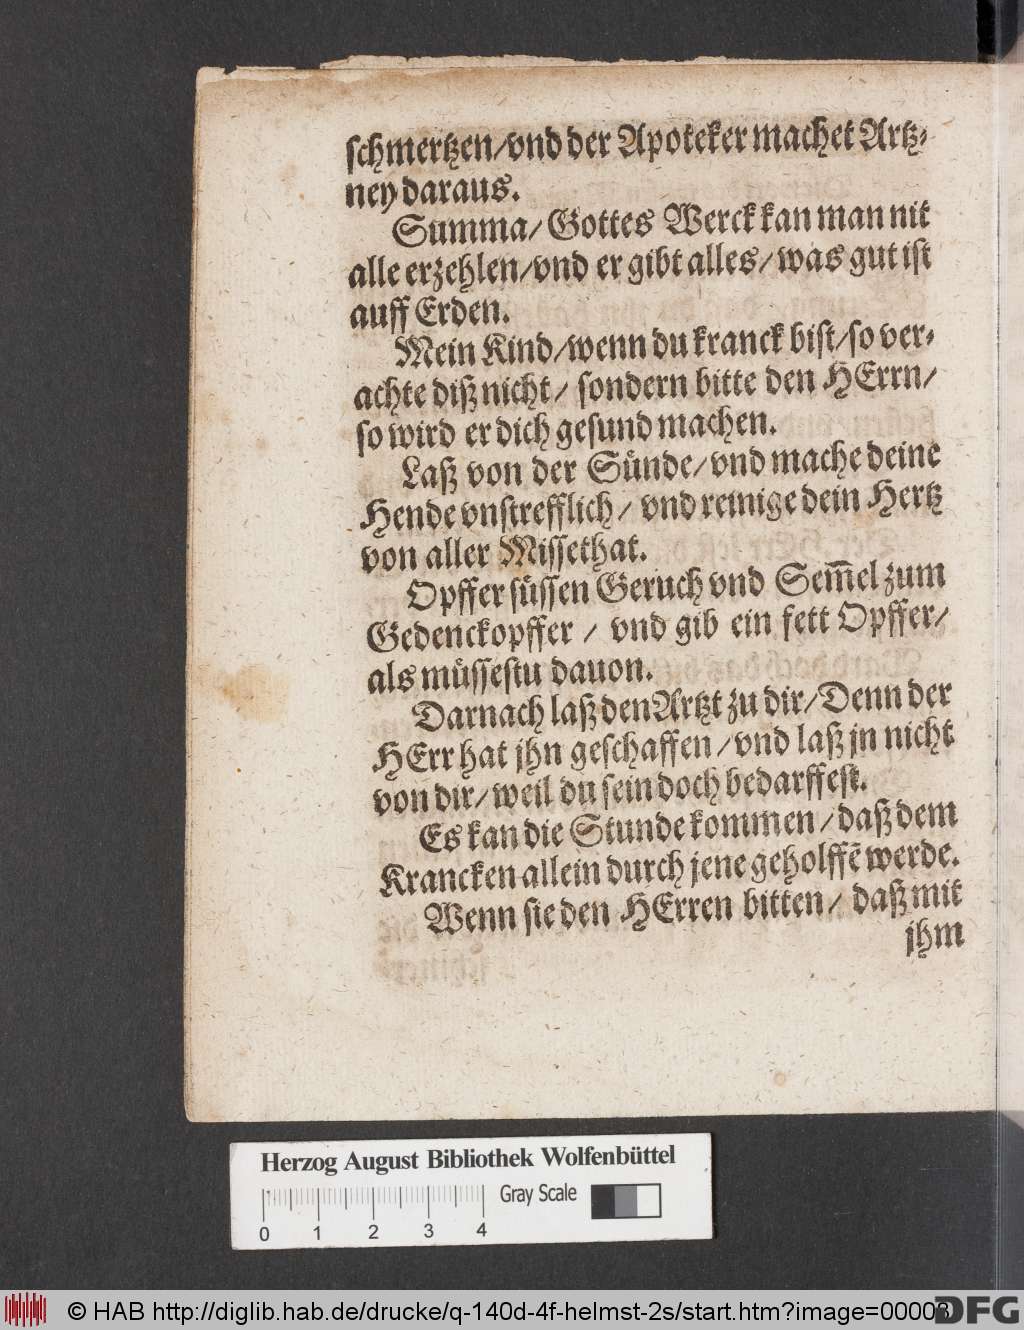 schmertzen/vnd der Apoteker machet Artz-
ney daraus.
Summa/ Gottes Werck kan man nit
alle erzehlen/vnd er gibt alles/ was gut ist
auff Erden.
Mein Kind/wenn du kranck bist/so ver-
achte diß nicht/ sondern bitte den HErrn/
so wird er dich gesund machen.
Laß von der Sünde/vnd mache deine
Hende vnstrefflich/ vnd reinige dein Hertz
von aller Missethat.
Opffer süssen Geruch vnd Sem̃el zum
Gedenckopffer / vnd gib ein fett Opffer/
als müssestu dauon.
Darnach laß den Artzt zu dir/Denn der
HErr hat jhn geschaffen/vnd laß jn nicht
von dir/weil du sein doch bedarffest.
Es kan die Stunde kommen/daß dem
Krancken allein durch jene geholffẽ werde.
Wenn sie den HErren bitten/ daß mit
jhm
Herzog August Bibliothek Wolfenbüttel
Gray Scale
0 1 2 3 4
© HAB http://diglib.hab.de/drucke/q-140d-4f-helmst-2s/start.htm?image=00008
DFG